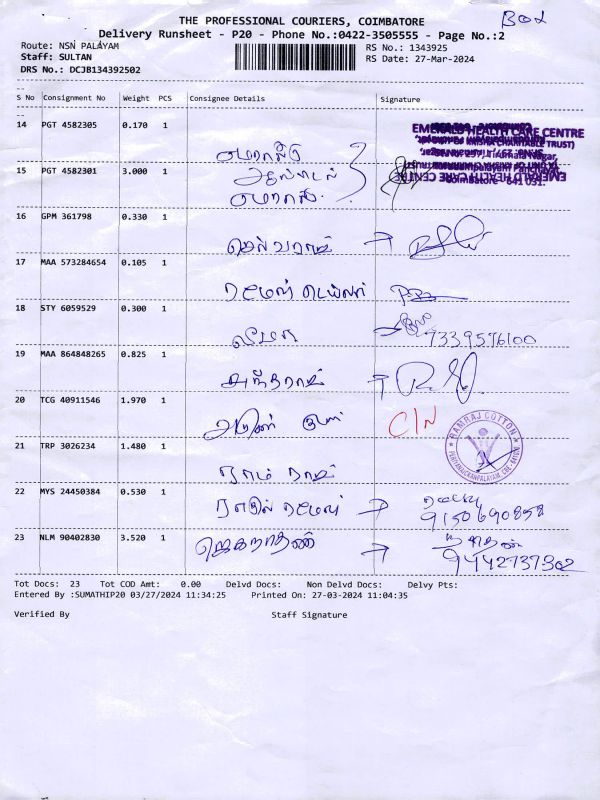 THE PROFESSIONAL COURIERS, COIMBATORE
Box
Delivery Runsheet - P20 - Phone No.:0422-3505555 - Page No.:2
Route: NSN PALAYAM
RS No.: 1343925
Staff: SULTAN
RS Date: 27-Mar-2024
DRS No.: DCJB134392502
S No Consignment No Weight PCS Consignee Details Signature
14 PGT 4582305 0.170 1
EMERALD HEALTH CARE CENTRE
எமரால்டு
15 PGT 4582301 3.000 1
Coimbatore - 641 031.
16 GPM 361798 0.330 1
செல்வராஜ்
17 MAA 573284654 0.105 1
ரமேஷ் டெய்லர்
18 STY 6059529 0.300 1
7339576100
19 MAA 864848265 0.825 1
20 TCG 40911546 1.970 1
C/N
RAMRAJ COTTON
21 TRP 3026234 1.480 1
ராம் ராஜ்
22 MYS 24450384 0.530 1
9150690858
23 NLM 90402830 3.520 1
ஜெகநாதன்
9442737302
Tot Docs: 23 Tot COD Amt: 0.00 Delvd Docs: Non Delvd Docs: Delvy Pts:
Entered By :SUMATHIP20 03/27/2024 11:34:25 Printed On: 27-03-2024 11:04:35
Verified By Staff Signature